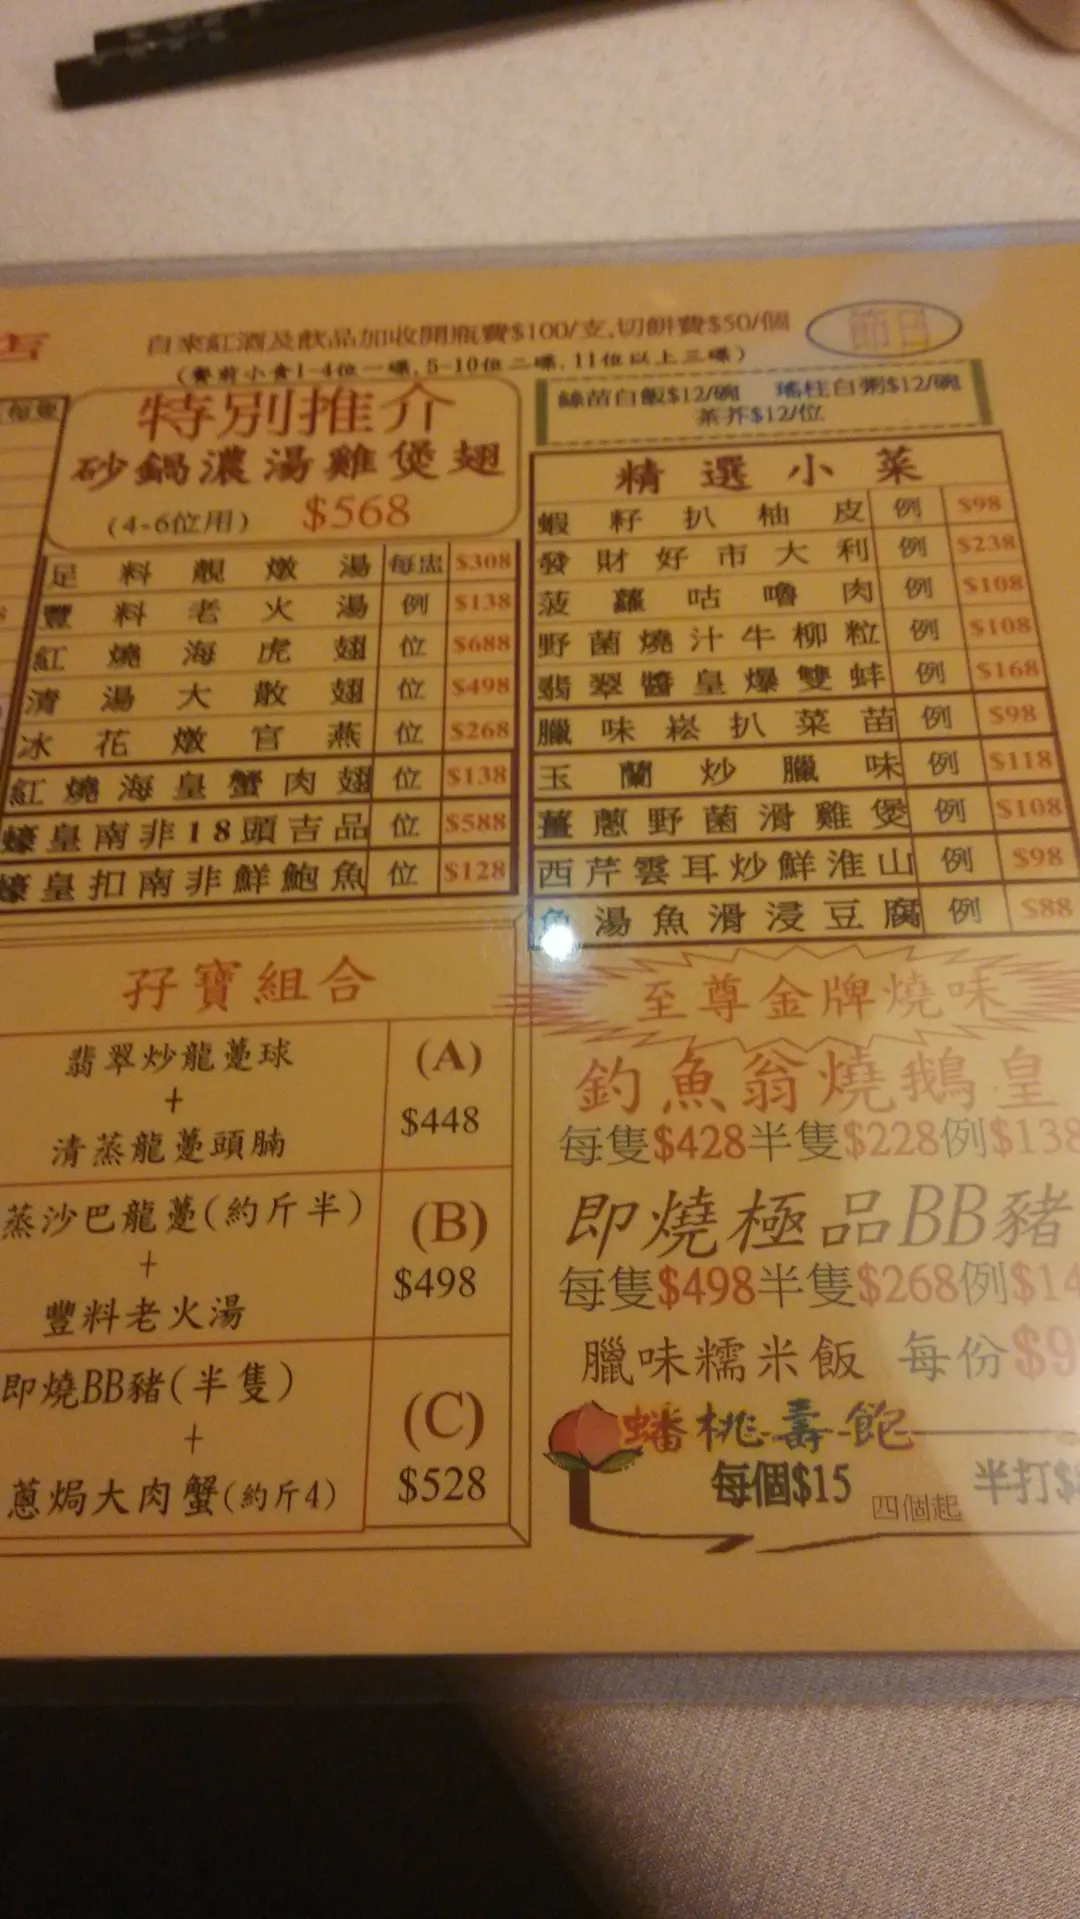 自來紅酒及飲品加收開瓶費$100/支,切餅費$50/個
節日
(餐前小食1-4位一碟,5-10位二碟,11位以上三碟)
特別推介
砂鍋濃湯雞煲翅
(4-6位用) $568
足料靚燉湯 每盅 $308
豐料老火湯 例 $138
紅燒海虎翅 位 $688
清湯大散翅 位 $498
冰花燉官燕 位 $268
紅燒海皇蟹肉翅 位 $138
蠔皇南非18頭吉品 位 $588
蠔皇扣南非鮮鮑魚 位 $128
絲苗白飯$12/碗 瑤柱白粥$12/碗
茶芥$12/位
精選小菜
蝦籽扒柚皮 例 $98
發財好市大利 例 $238
菠蘿咕嚕肉 例 $108
野菌燒汁牛柳粒 例 $108
翡翠醬皇爆雙蚌 例 $168
臘味崧扒菜苗 例 $98
玉蘭炒臘味 例 $118
薑蔥野菌滑雞煲 例 $108
西芹雲耳炒鮮淮山 例 $98
魚湯魚滑浸豆腐 例 $88
孖寶組合
翡翠炒龍躉球
+
清蒸龍躉頭腩
(A)
$448
蒸沙巴龍躉(約斤半)
+
豐料老火湯
(B)
$498
即燒BB豬(半隻)
+
蔥焗大肉蟹(約斤4)
(C)
$528
至尊金牌燒味
釣魚翁燒鵝皇
每隻$428半隻$228例$138
即燒極品BB豬
每隻$498半隻$268例$14
臘味糯米飯 每份$9
蟠桃壽飽
每個$15 四個起 半打$